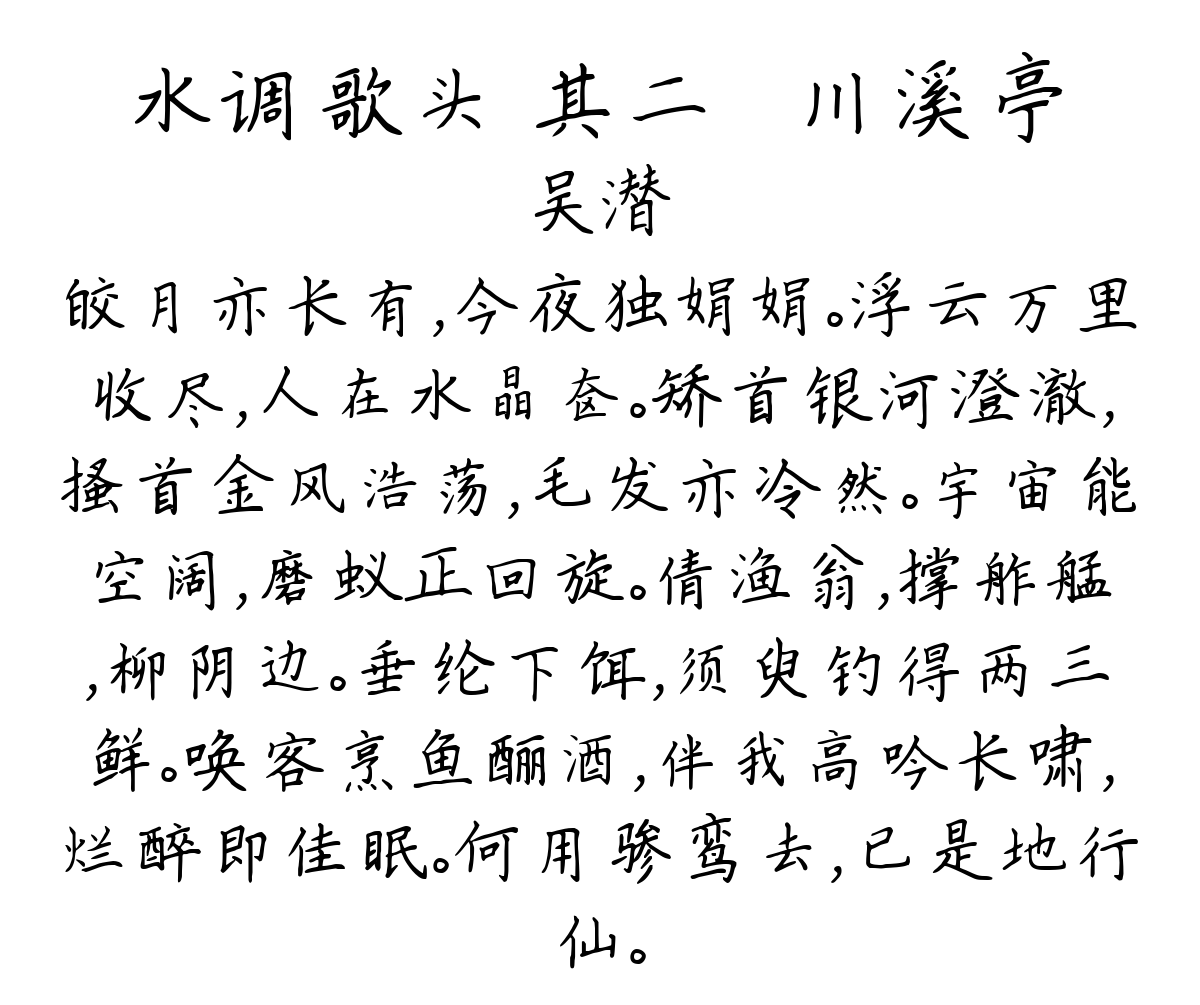 水调歌头 其二 川溪亭
吴潜
皎月亦长有,今夜独娟娟。浮云万里
收尽,人在水晶奁。矫首银河澄澈,
搔首金风浩荡,毛发亦冷然。宇宙能
空阔,磨蚁正回旋。倩渔翁,撑舴艋
,柳阴边。垂纶下饵,须臾钓得两三
鲜。唤客烹鱼酾酒,伴我高吟长啸,
烂醉即佳眠。何用骖鸾去,已是地行
仙。